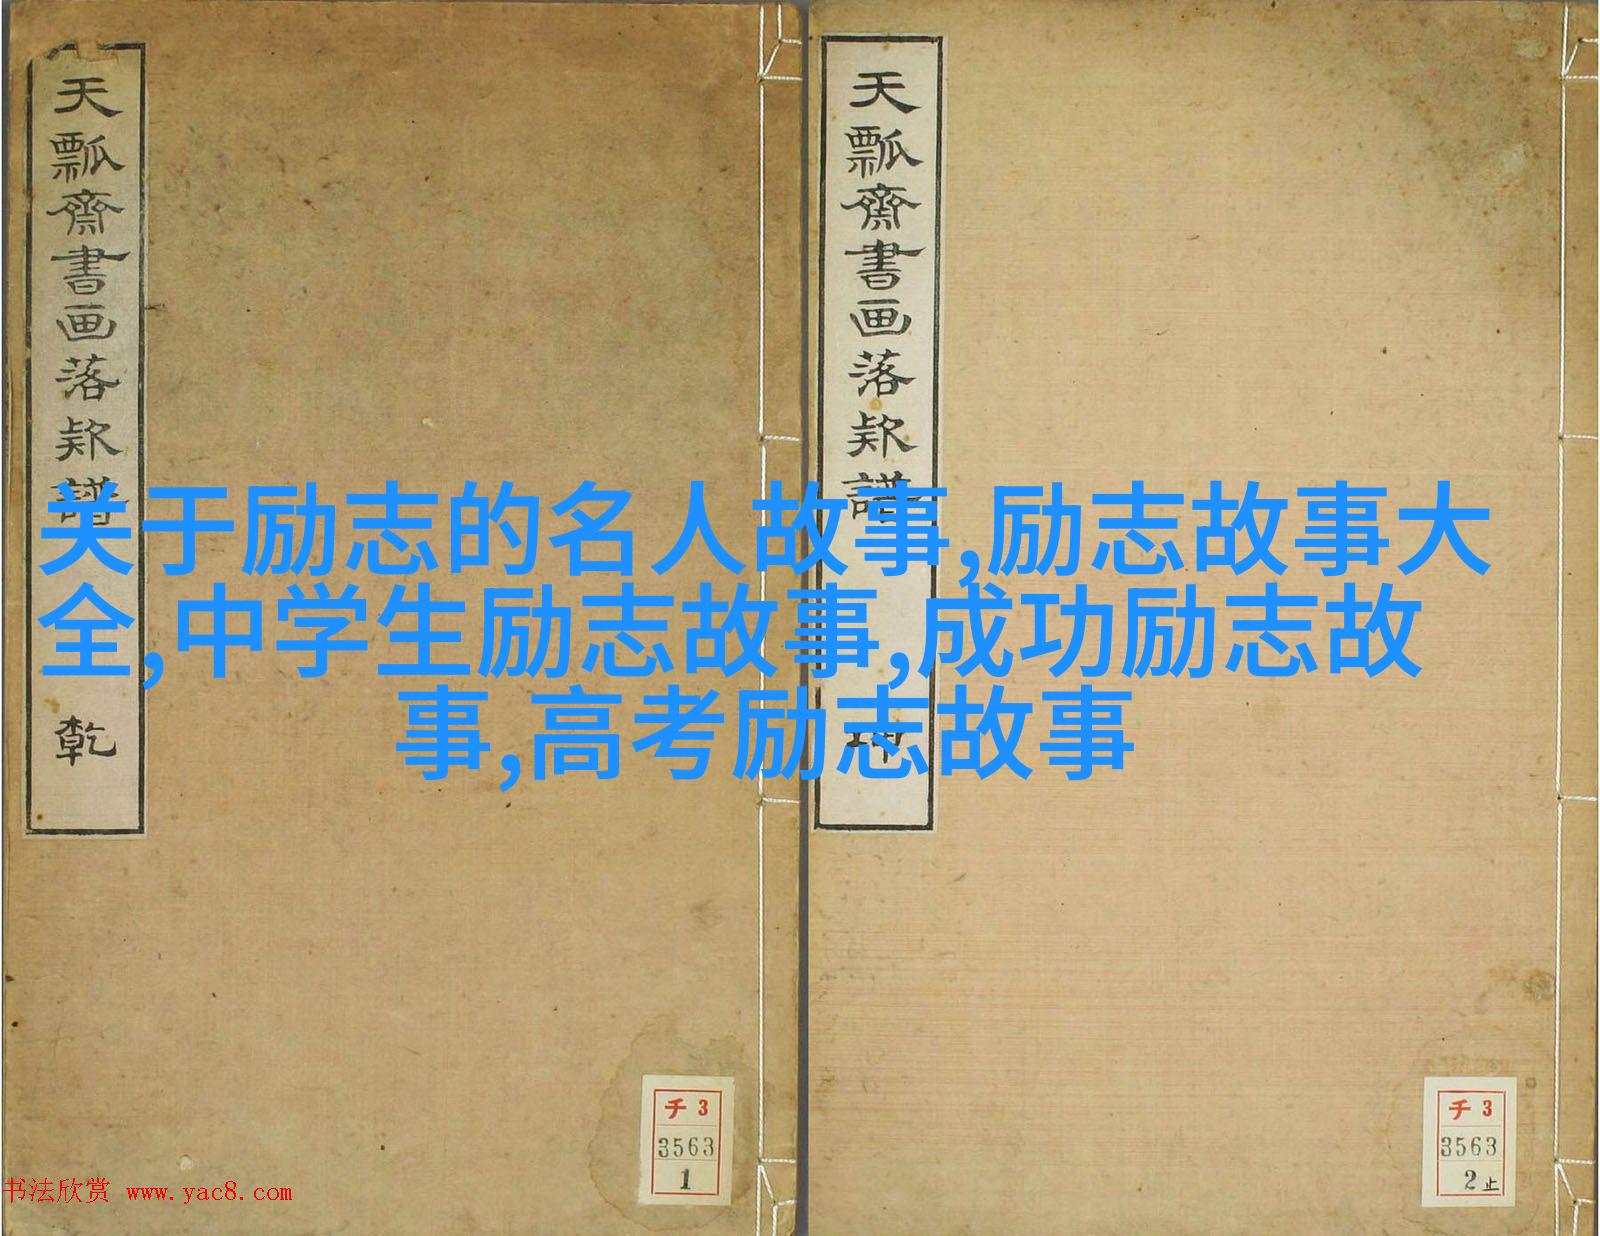 天瓢齋書画落款譜
乾
天瓢齋書画落款譜
坤
关于励志的名人故事,励志故事大
全,中学生励志故事,成功励志故
事,高考励志故事
チ3
3563
1
チ3
3563
2止
书法欣赏 www.yac8.com